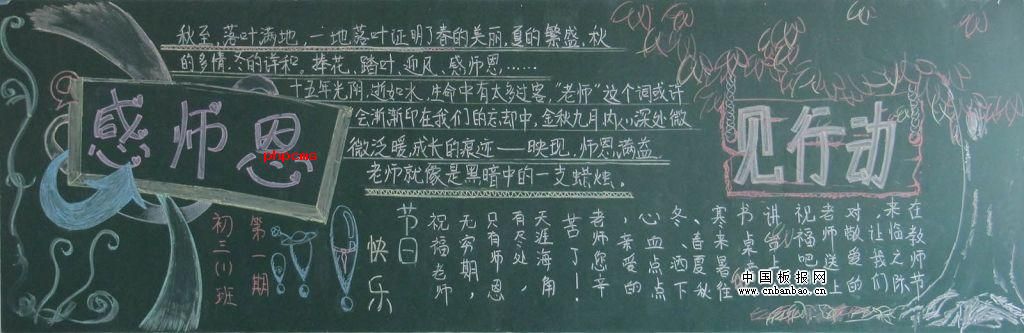 秋至,落叶满地,一地落叶证明了春的美丽,夏的繁盛,秋
的多情,冬的祥和。捧花、踏叶、迎风、感师恩……
十五年光阴,逝如水,生命中有太多过客,"老师"这个词或许
会渐渐印在我们的忘却中,金秋九月内心深处微
微泛暖,成长的痕迹——映现,师恩满溢。
老师就像是黑暗中的一支蜡烛。
感师恩
phpcms
见行动
在教师节
来临之际
,让我们
对敬爱的
老师送上
祝福吧
讲台上
书桌
寒来暑往
、春夏秋
冬、洒下
心血点点
,亲爱的
老师您辛
苦了!
天涯海角
有尽处,
只有师恩
无穷期,
祝福老师
节日
快乐
第一期
初三(1)班
中国板报网
www.cnbanbao.cn